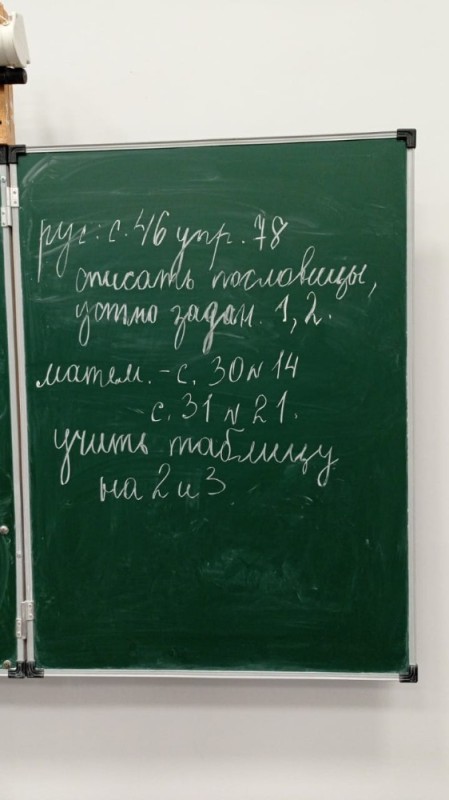 рус: с. 46 упр. 78
списать пословицы,
устно задан. 1, 2.
матем. - с. 30 № 14
с. 31 № 21.
учить таблицу
на 2 и 3